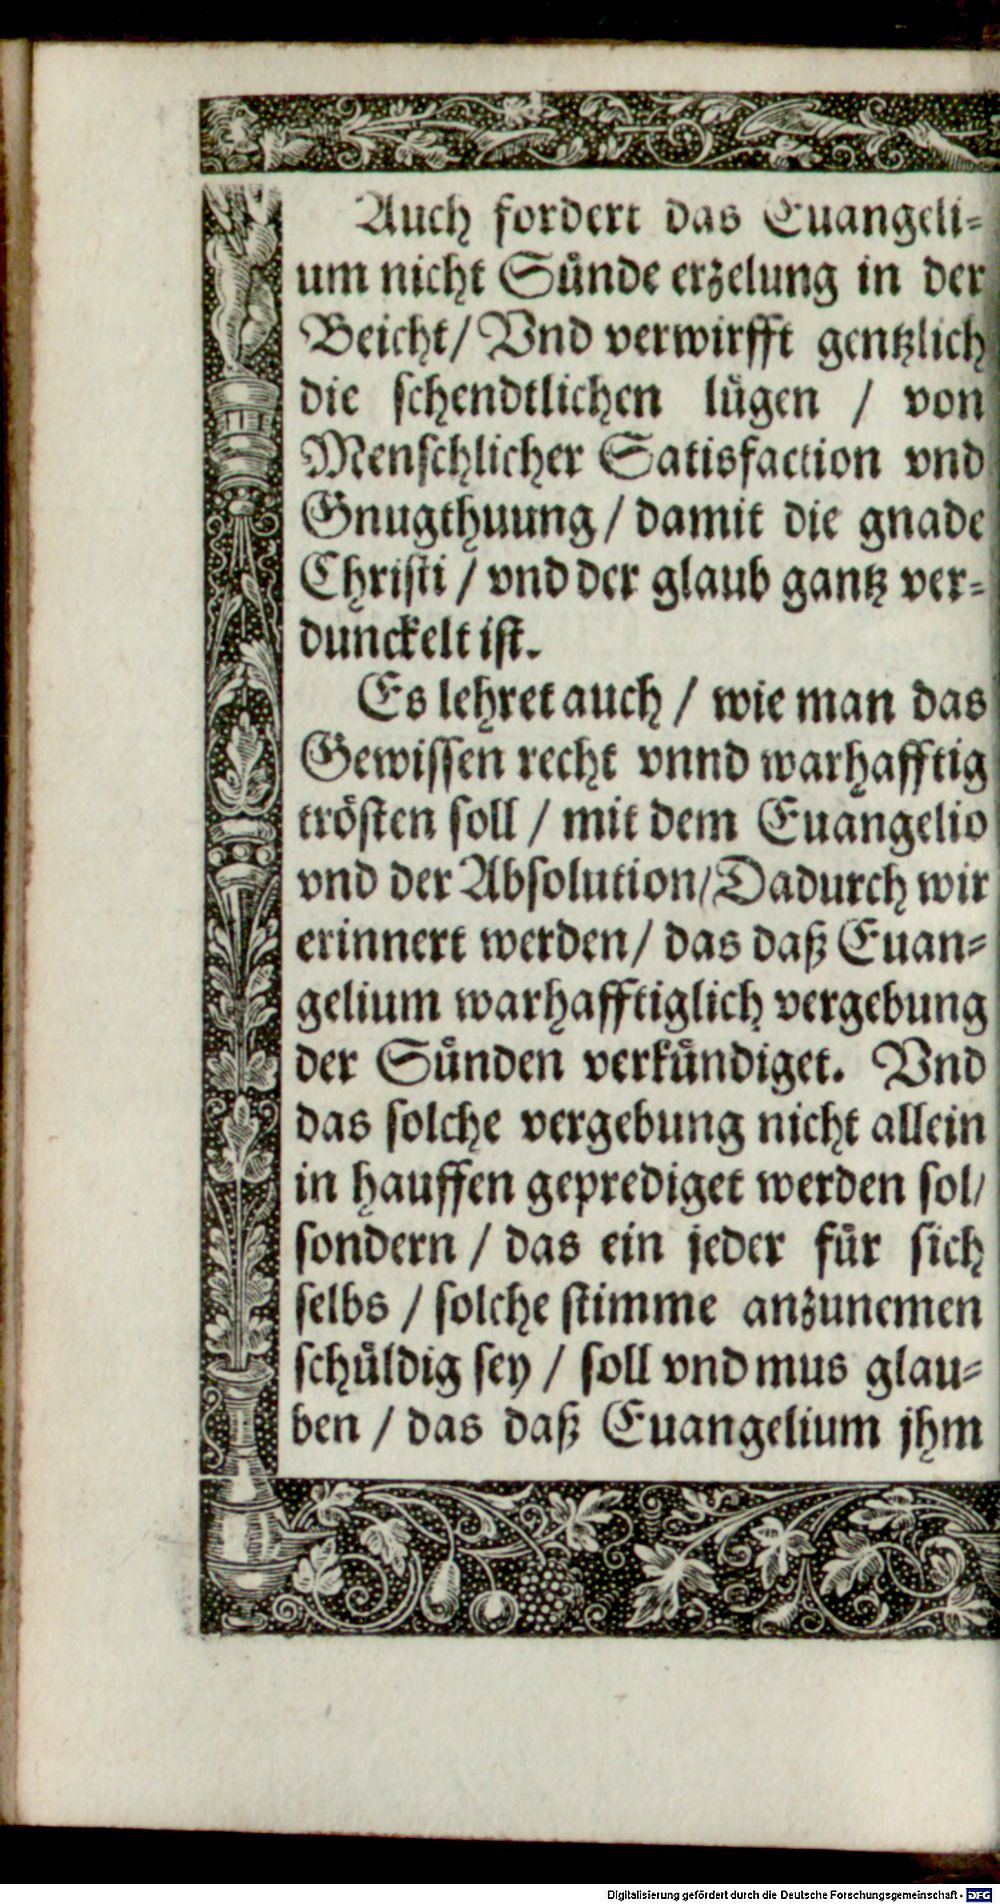 Auch fordert das Euangeli-
um nicht Sünde erzelung in der
Beicht/ Vnd verwirfft gentzlich
die schendtlichen lügen / von
Menschlicher Satisfaction vnd
Gnugthuung / damit die gnade
Christi / vnd der glaub gantz ver-
dunckelt ist.
Es lehret auch / wie man das
Gewissen recht vnnd warhafftig
trösten soll / mit dem Euangelio
vnd der Absolution/ Dadurch wir
erinnert werden/ das daß Euan-
gelium warhafftiglich vergebung
der Sünden verkündiget. Vnd
das solche vergebung nicht allein
in hauffen geprediget werden sol/
sondern / das ein jeder für sich
selbs / solche stimme anzunemen
schüldig sey / soll vnd mus glau-
ben / das daß Euangelium jhm
Digitalisierung gefördert durch die Deutsche Forschungsgemeinschaft - DFG